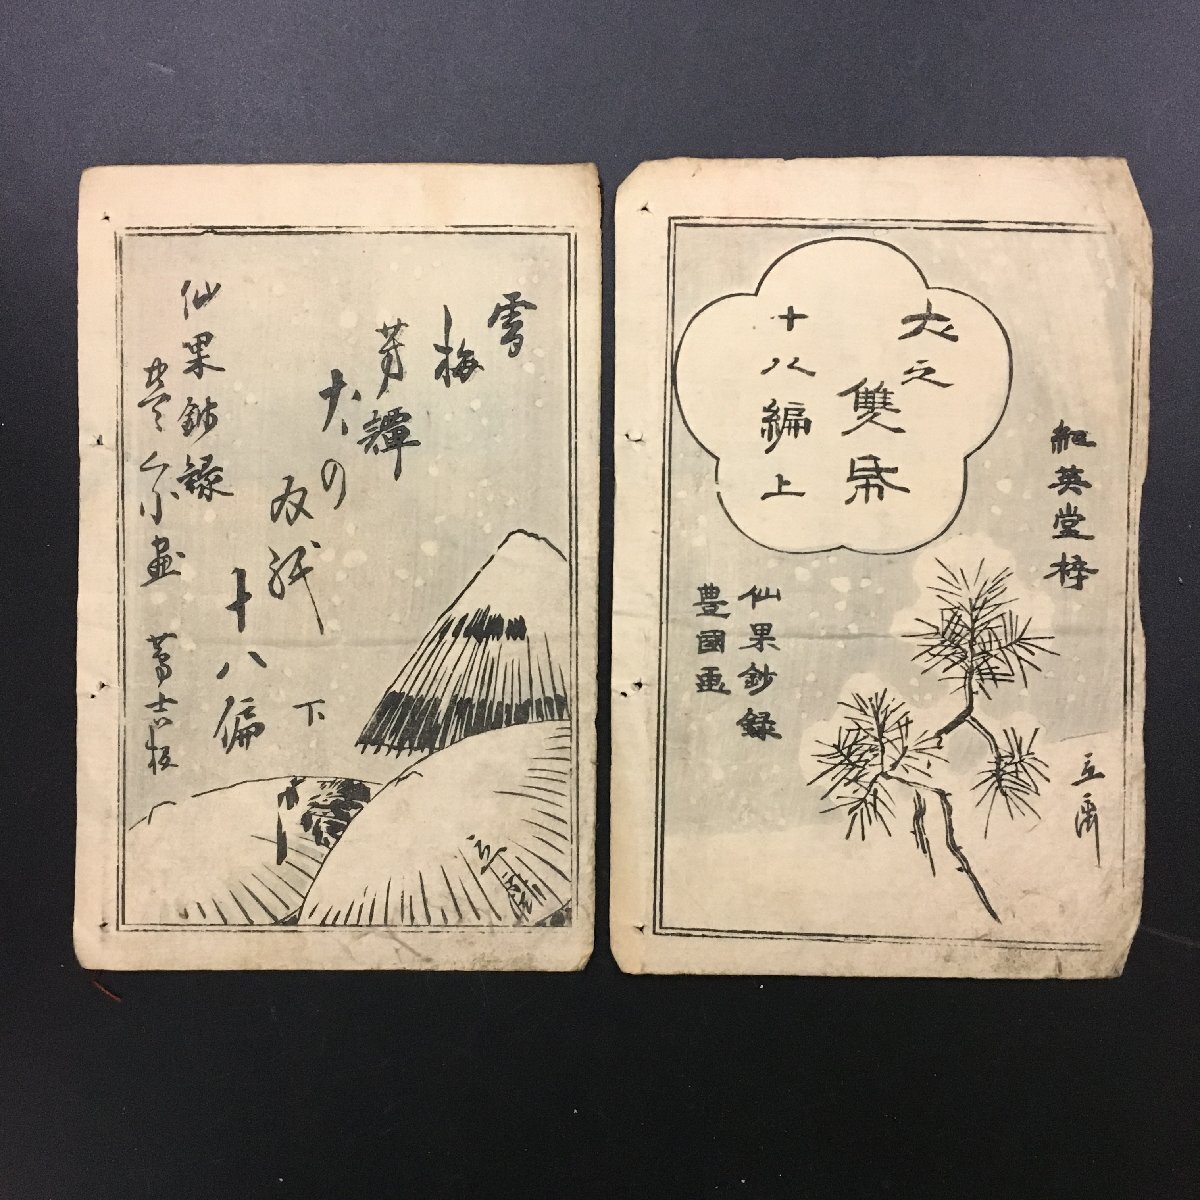 紅英堂梓
犬之
雙帋
十八編上
仙果鈔録
豊國画
立斎
雪
梅
芳譚
犬の
双紙
十八偏
下
仙果鈔録
画
蔦吉板
立斎